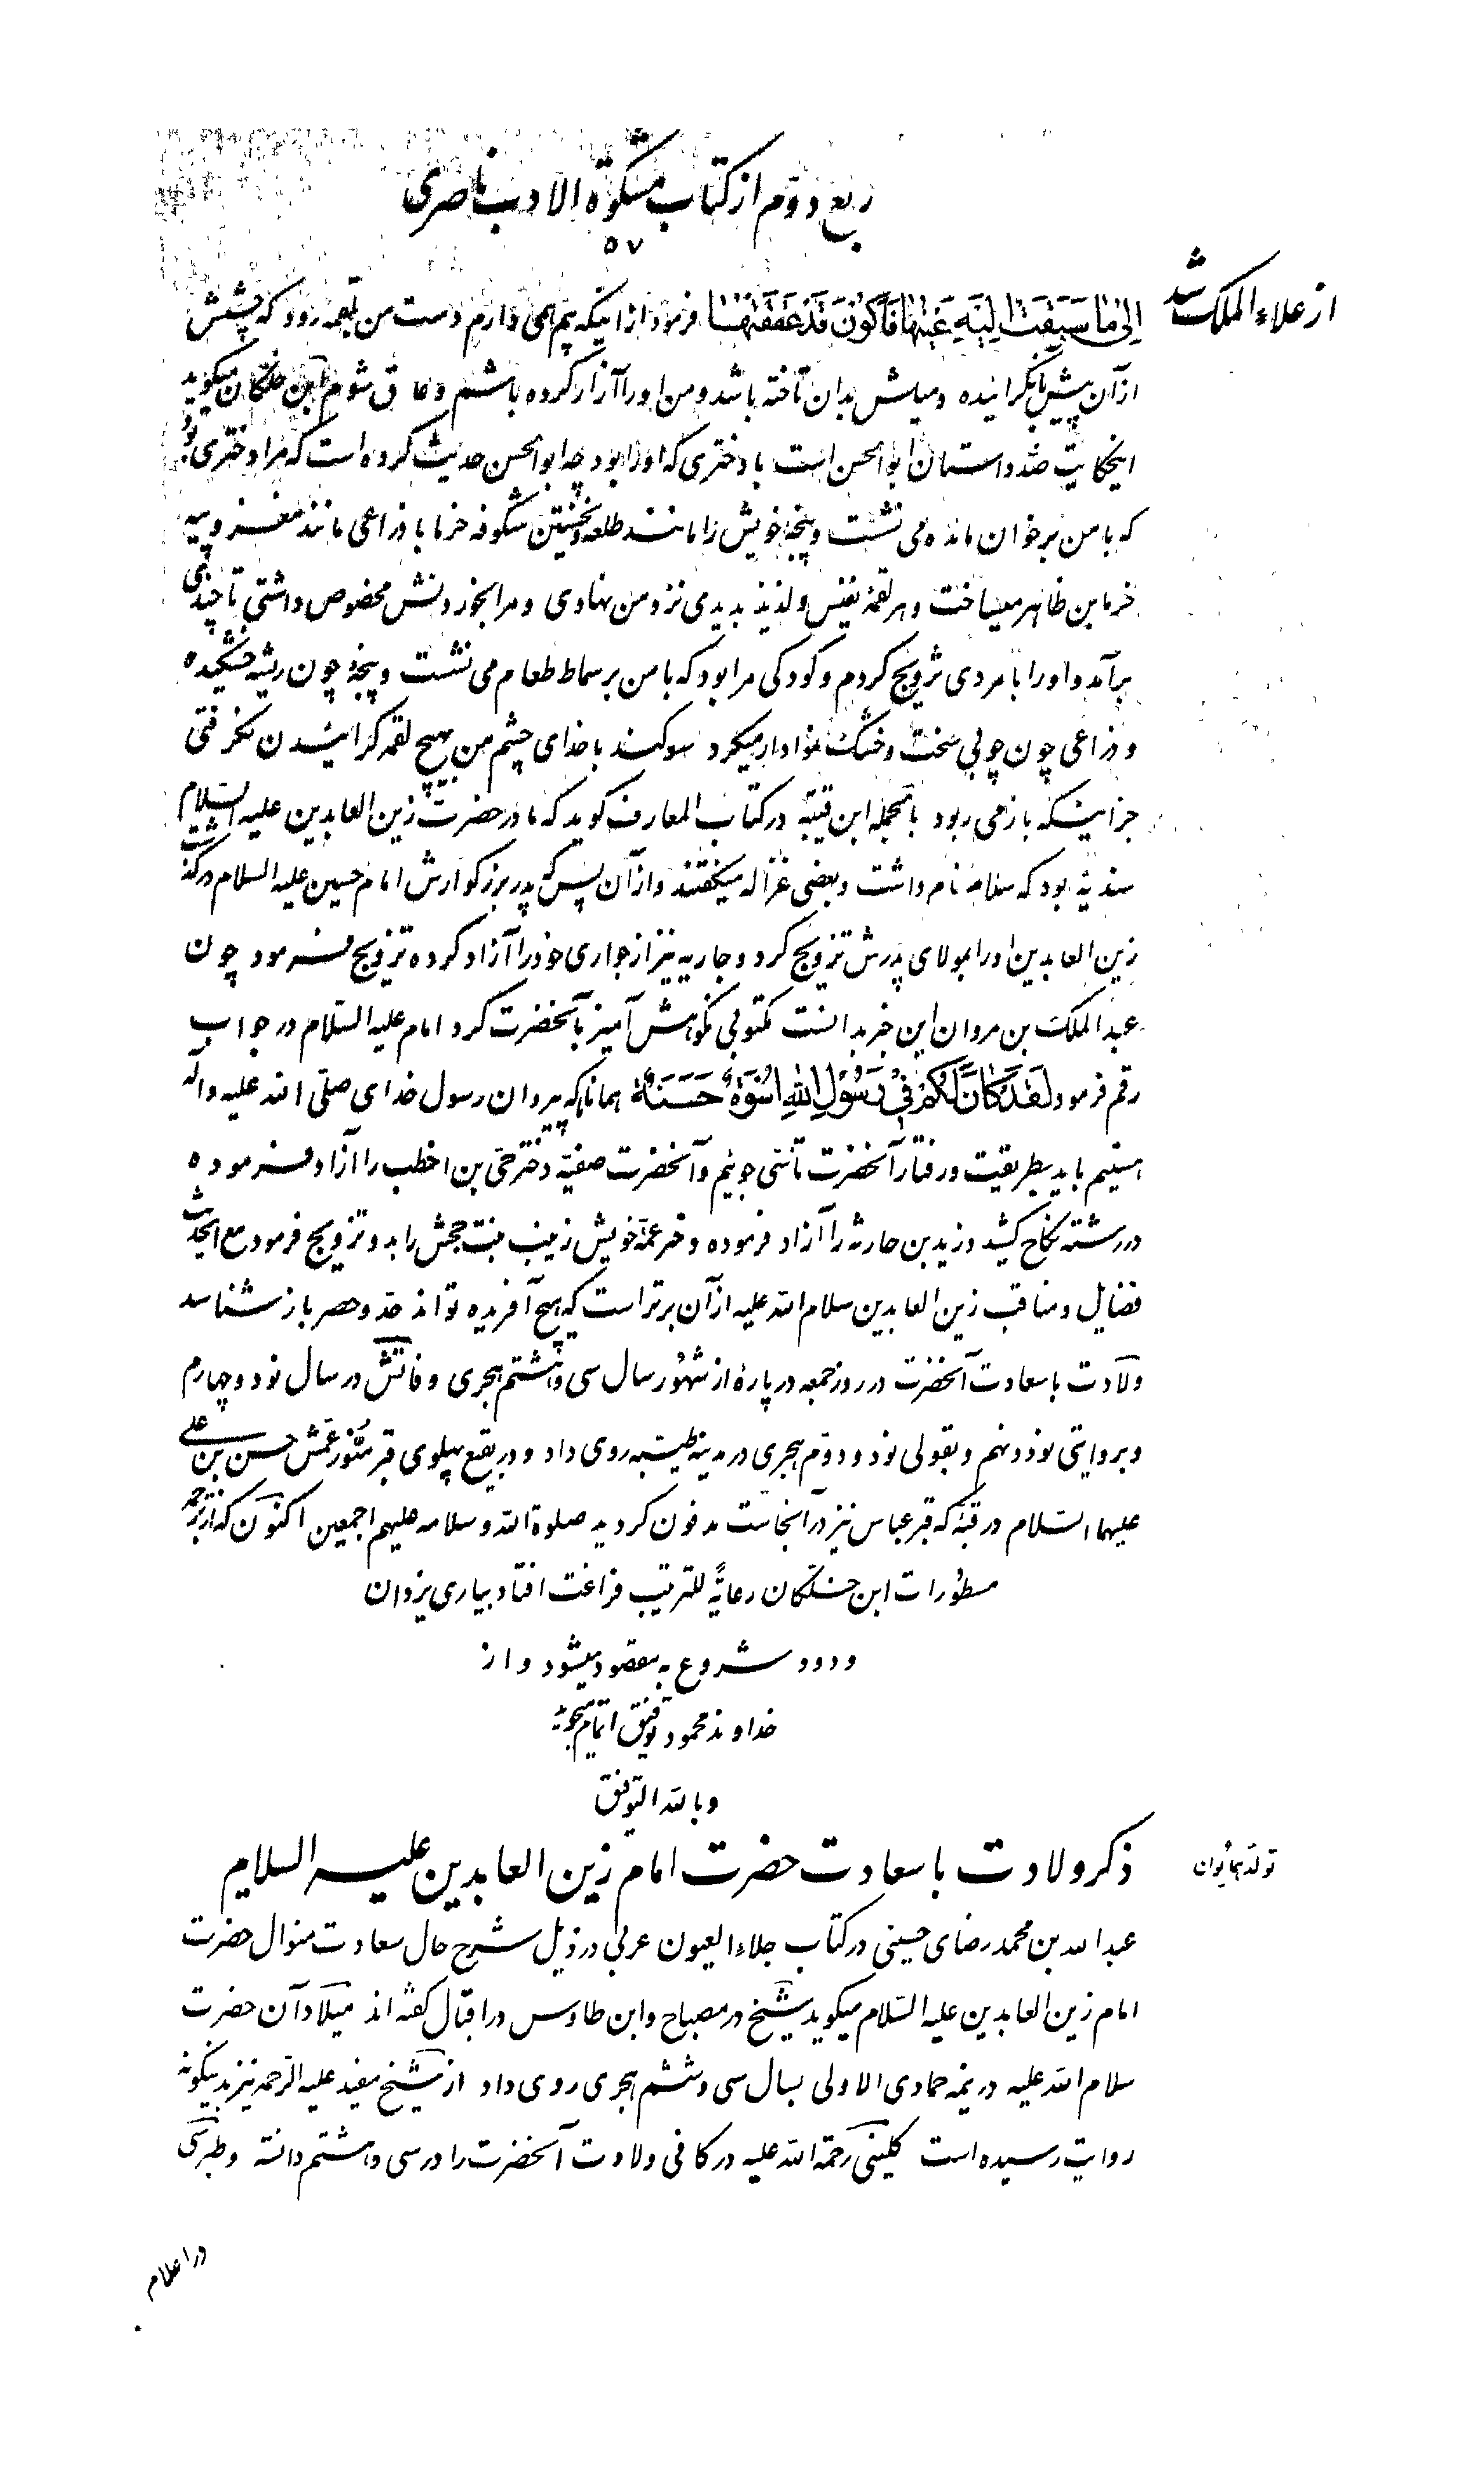 ربع دوم از کتاب مشکوة الادب ناصری
۵۷
از علاء الملک شد
اِلیٰ مٰا سَبَقَتْ اِلَیْهِ عَیْنُهٰا فَاَکُونَ قَدْ عَقَقْتُهٰا فرمود از اینکه بیم همی دارم دست من بلقمه رود که چشمش
از آن پیش بآن نگرانیده و میلش بدان تاخته باشد و من او را آزار کرده باشم و عاق شوم ابن خلکان میگوید
اینحکایت ضد داستان ابو الحسن است با دختری که او را بود چه ابو الحسن حدیث کرده است که مرا دختری بود
که با من بر خوان مائده می نشست و پنجه خویش را مانند طلعه و نخستین شکوفه خرما با ذراعی مانند مغز و پیه
خرمابن ظاهر میساخت و هر لقمه نفیس و لذیذ بدیدی نزد من نهادی و مرا بخوردنش مخصوص داشتی تا چندی
برآمد و او را با مردی تزویج کردم و کودکی مرا بود که با من بر سماط طعام می نشست و پنجهٔ چون ریشه خشکیده
و ذراعی چون چوبی سخت و خشک نمودار میکرد سوکند با خدای چشم من بهیچ لقمه کرانیدن نکرفتی
جز اینکه باز می ربود بالجمله ابن قتیبه در کتاب المعارف کوید که مادر حضرت زین العابدین علیه السلام
سندیّه بود که سلافه نام داشت و بعضی غزاله میکفتند و از آن پس که پدر بزرکوارش امام حسین علیه السلام درکذشت
زین العابدین او را بمولای پدرش تزویج کرد و جاریه نیز از جواری خود را آزاد کرده تزویج فرمود چون
عبد الملک بن مروان این خبر بدانست مکتوبی نکوهش آمیز بآنحضرت کرد امام علیه السّلام در جواب
رقم فرمود لَقَدْ کٰانَ لَکُمْ فی رَسُولِ اللهِ اُسْوَةٌ حَسَنَةٌ همانا که پیروان رسول خدای صلّی الله علیه و آله
هستیم باید بطریقیت و رفتار آنحضرت تأسّی جوئیم و آنحضرت صفیّه دختر حیّ بن اخطب را آزاد فرموده
در رشته نکاح کشید و زید بن حارثه را آزاد فرموده دختر عمّه خویش زینب بنت جحش را بدو تزویج فرمود مع الحدیث
فضایل و مناقب زین العابدین سلام الله علیه از آن برتر است که هیچ آفریده تواند حدّ و حصر باز شناسد
ولادت با سعادت آنحضرت در روز جمعه در پارهٔ از شهُور سال سی و هشتم هجری و فاتش در سال نود و چهارم
و بروایتی نود و نهم و بقولی نود و دوّم هجری در مدینه طیّبه روی داد و در بقیع پهلوی قبر منُوّر عمّش حسن بن علی
علیهما السّلام در قبّهٔ که قبر عباس نیز در آنجاست مدفون کردید صلوة الله و سلامه علیهم اجمعین اکنون که از ترجمه
مسطوُرات ابن خلّکان رعایةً للترتیب فراغت افتاد بیاری یزدان
ودود شروع به مقصود میشود و از
خداوند محمود توفیق اتمام میجوید
و بالله التوفیق
ذکر ولادت با سعادت حضرت امام زین العابدین علیه السلام
تولد همایون
عبد الله بن محمد رضای حسینی در کتاب جلاء العیون عربی در ذیل شرح حال سعادت منوال حضرت
امام زین العابدین علیه السّلام میکوید شیخ در مصباح و ابن طاوس در اقبال کفته اند میلاد آن حضرت
سلام الله علیه در نیمه جمادی الاولی بسال سی و ششم هجری روی داد از شیخ مفید علیه الرّحمه نیز بدینکونه
روایت رسیده است کلینی رحمة الله علیه در کافی ولادت آنحضرت را در سی و هشتم دانسته و طبرسی
در اعلام